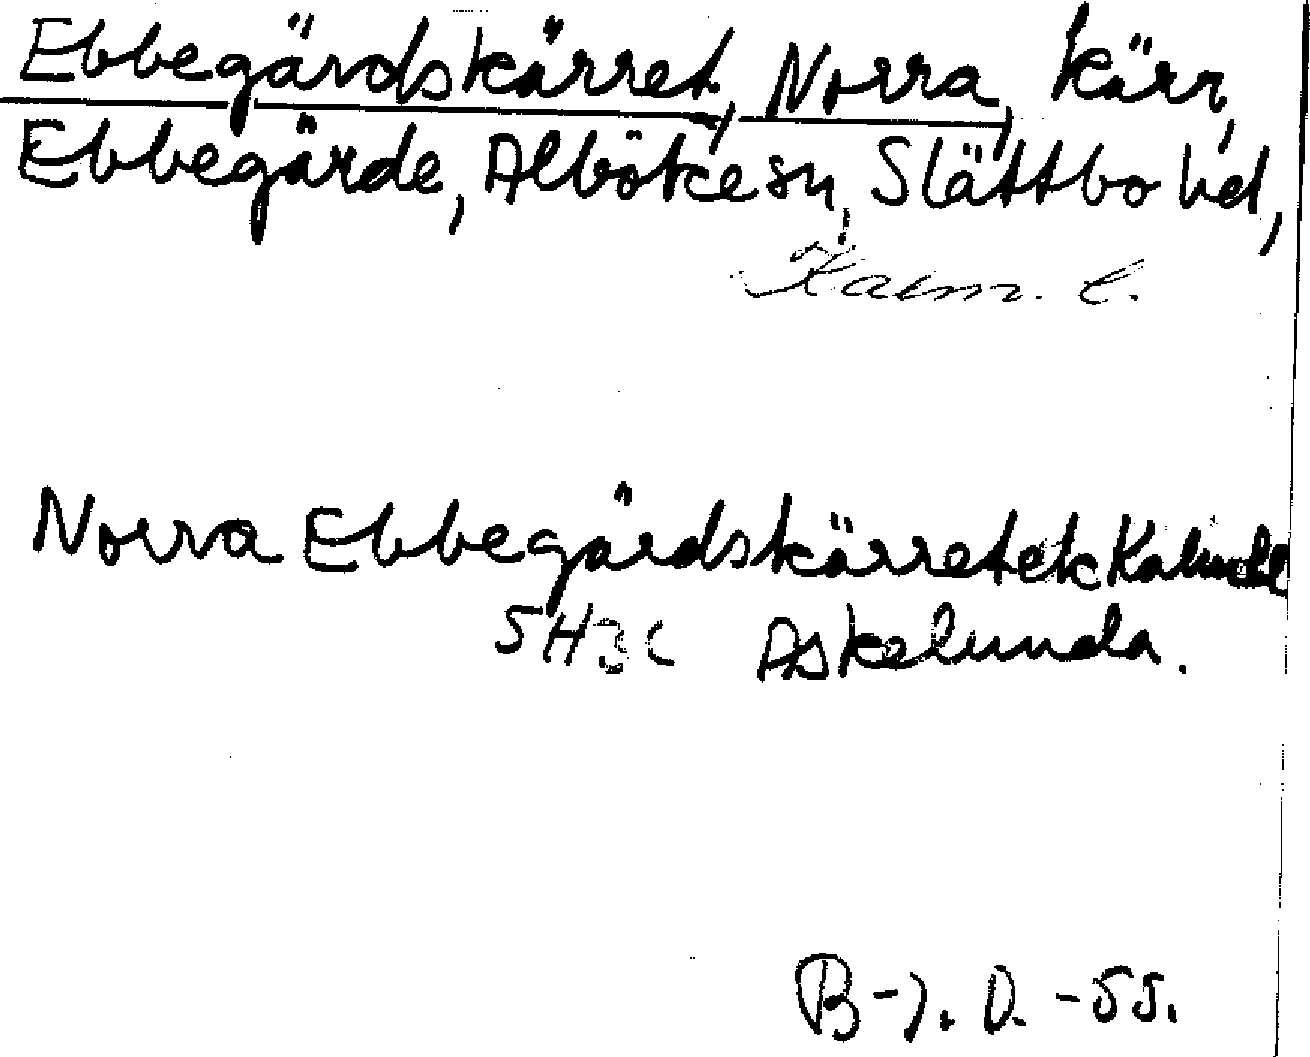 Ebbegärdskärret, Norra, kärr,
Ebbegärde, Alböke sn, Slättbo hd,
Kalm. l.
Norra Ebbegärdskärret ek Kalmar l
5H3c Askelunda.
B-). D. -55.